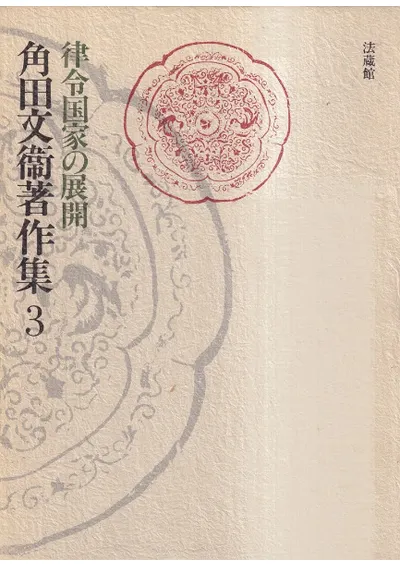 法蔵館
律令国家の展開
角田文衞著作集 3